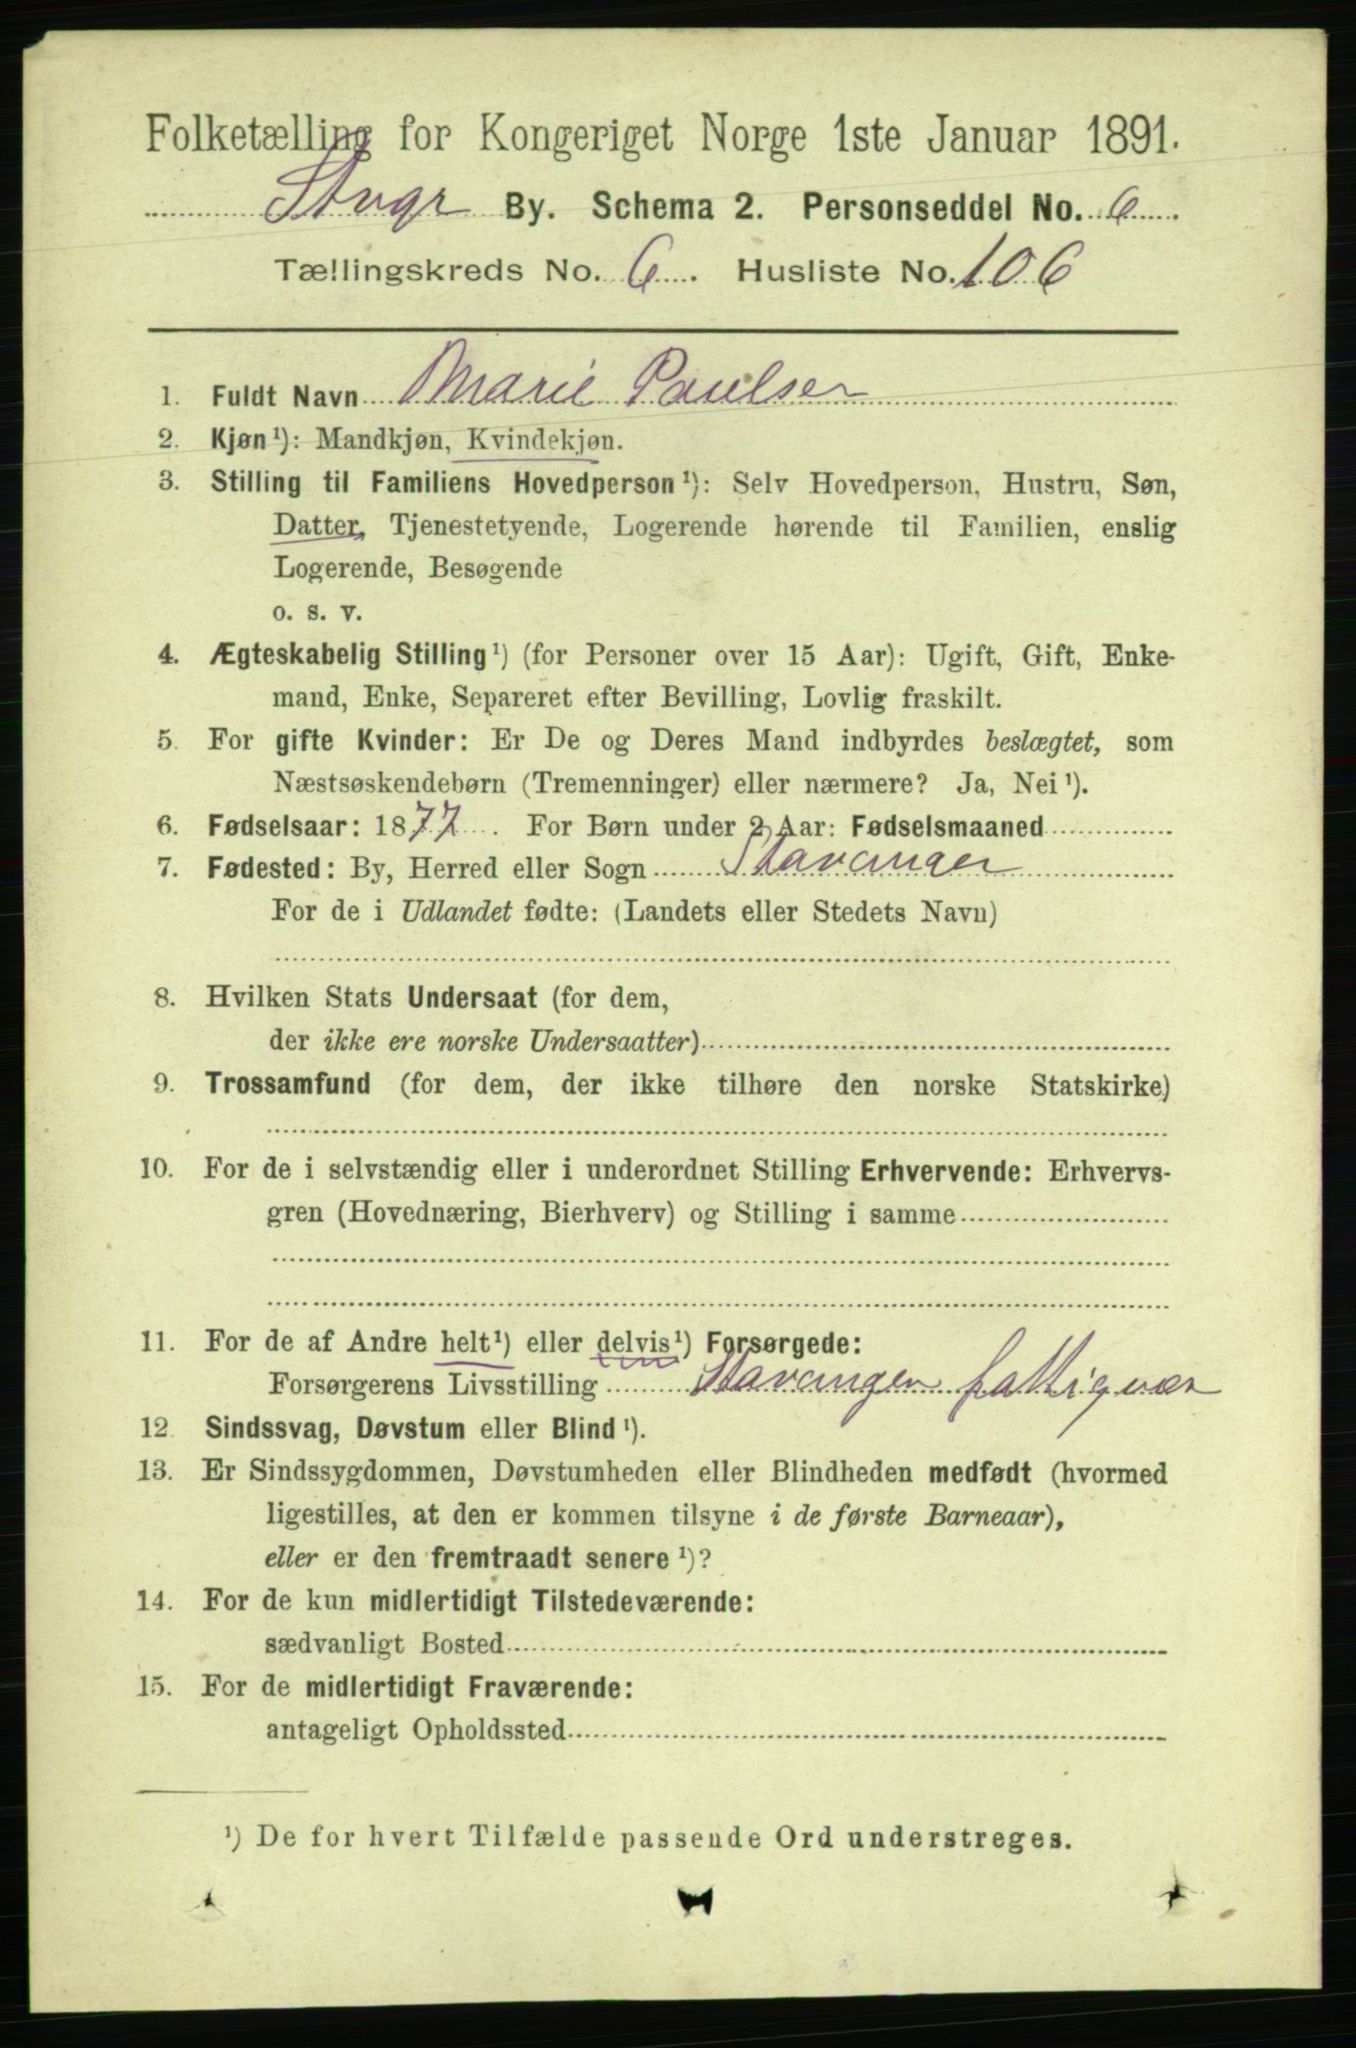 Folketælling for Kongeriget Norge 1ste Januar 1891.
Stvgr By. Schema 2. Personseddel No. 6
Tællingskreds No. 6. Husliste No. 106
1. Fuldt Navn Marie Paulsen
2. Kjøn ¹): Mandkjøn, Kvindekjøn.
3. Stilling til Familiens Hovedperson ¹): Selv Hovedperson, Hustru, Søn,
Datter, Tjenestetyende, Logerende hørende til Familien, enslig
Logerende, Besøgende
o. s. v.
4. Ægteskabelig Stilling ¹) (for Personer over 15 Aar): Ugift, Gift, Enke-
mand, Enke, Separeret efter Bevilling, Lovlig fraskilt.
5. For gifte Kvinder: Er De og Deres Mand indbyrdes beslægtet, som
Næstsøskendebørn (Tremenninger) eller nærmere? Ja, Nei ¹).
6. Fødselsaar: 1877. For Børn under 2 Aar: Fødselsmaaned
7. Fødested: By, Herred eller Sogn Stavanger
For de i Udlandet fødte: (Landets eller Stedets Navn)
8. Hvilken Stats Undersaat (for dem,
der ikke ere norske Undersaatter)
9. Trossamfund (for dem, der ikke tilhøre den norske Statskirke)
10. For de i selvstændig eller i underordnet Stilling Erhvervende: Erhvervs-
gren (Hovednæring, Bierhverv) og Stilling i samme
11. For de af Andre helt ¹) eller delvis ¹) Forsørgede:
Forsørgerens Livsstilling Stavanger fattigvæs
12. Sindssvag, Døvstum eller Blind ¹).
13. Er Sindssygdommen, Døvstumheden eller Blindheden medfødt (hvormed
ligestilles, at den er kommen tilsyne i de første Barneaar),
eller er den fremtraadt senere ¹)?
14. For de kun midlertidigt Tilstedeværende:
sædvanligt Bosted
15. For de midlertidigt Fraværende:
antageligt Opholdssted
¹) De for hvert Tilfælde passende Ord understreges.